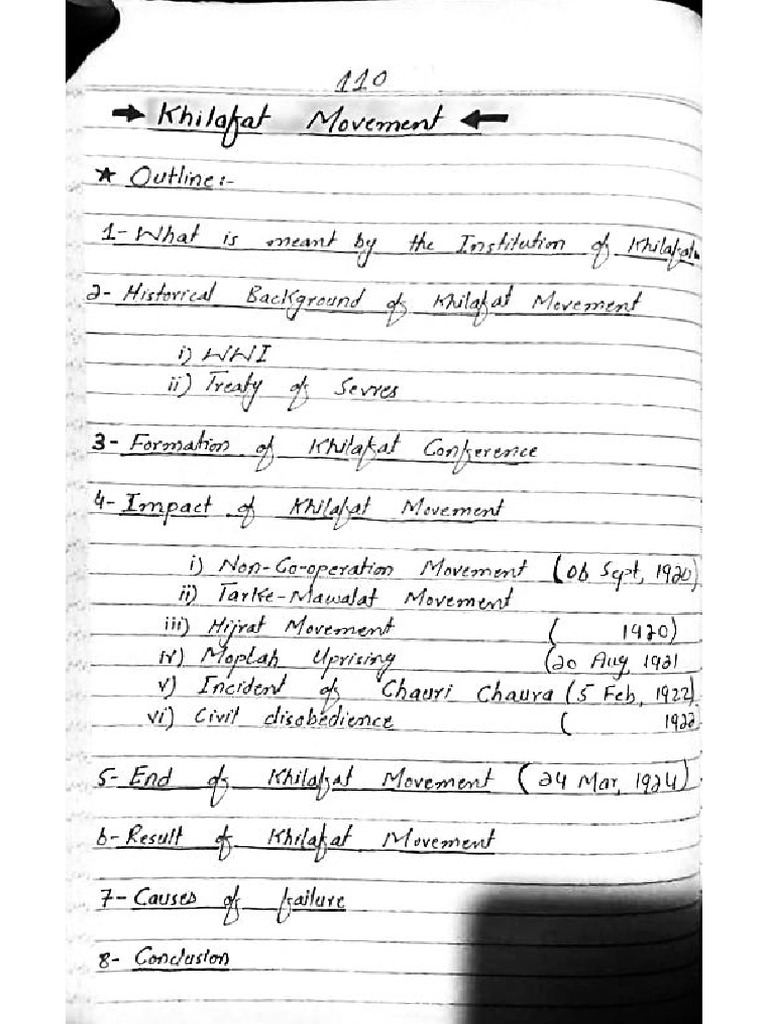 110
→ Khilafat Movement ←
★ Outline:-
1- What is meant by the Institution of Khilafat
2- Historical Background of Khilafat Movement
i) WWI
ii) Treaty of Sevres
3- Formation of Khilafat Conference
4- Impact of Khilafat Movement
i) Non-Co-operation Movement (06 Sept, 1920)
ii) Tarke-Mawalat Movement
iii) Hijrat Movement ( 1920)
iv) Moplah Uprising (20 Aug, 1921
v) Incident of Chauri Chaura (5 Feb, 1922)
vi) Civil disobedience ( 1922
5- End of Khilafat Movement (24 Mar, 1924)
6- Result of Khilafat Movement
7- Causes of failure
8- Conclusion